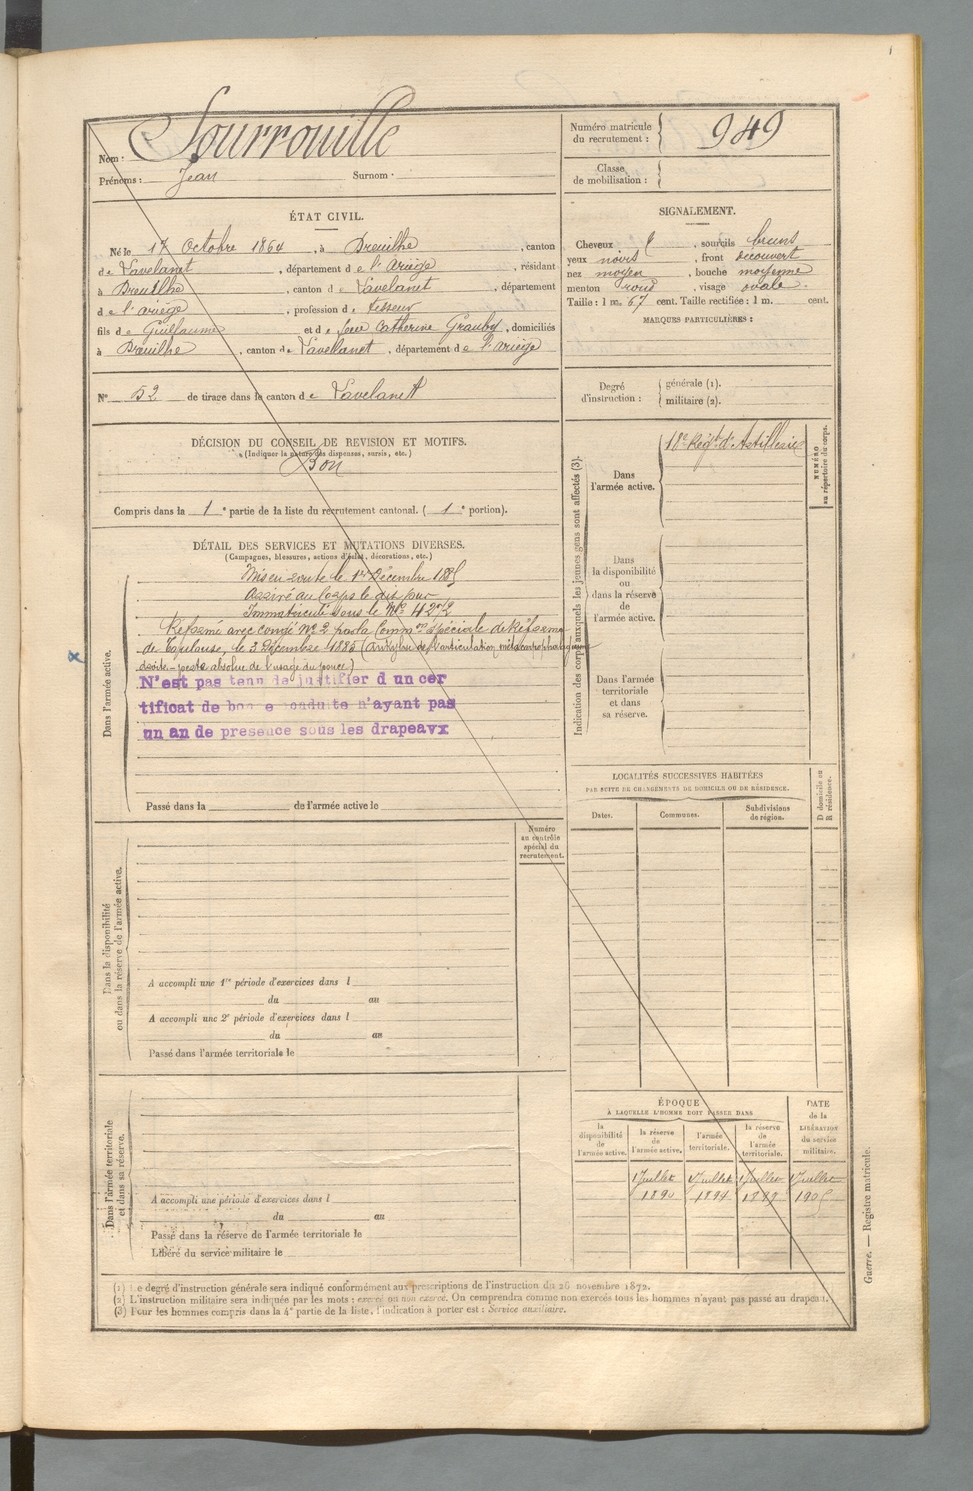 Nom : Sourrouille
Prénoms : Jean Surnom :
Numéro matricule du recrutement : 949
Classe de mobilisation :
ÉTAT CIVIL.
Né le 17 Octobre 1864, à Dreuilhe, canton
de Lavelanet, département de l'Ariège, résidant
à Dreuilhe, canton de Lavelanet, département
de l'ariège, profession de Tisseur
fils de Guillaume et de feue Catherine Grauby, domiciliés
à Dreuilhe, canton de Lavelanet, département de l'ariège
SIGNALEMENT.
Cheveux et, sourcils bruns
yeux noirs, front découvert
nez moyen, bouche moyenne
menton rond, visage ovale.
Taille : 1 m. 67 cent. Taille rectifiée : 1 m. cent.
MARQUES PARTICULIÈRES :
N° 52 de tirage dans le canton de Lavelanet
Degré d'instruction :
générale (1).
militaire (2).
DÉCISION DU CONSEIL DE REVISION ET MOTIFS.
(Indiquer la nature des dispenses, sursis, etc.)
Bon
Compris dans la 1e partie de la liste du recrutement cantonal. ( 1e portion).
DÉTAIL DES SERVICES ET MUTATIONS DIVERSES.
(Campagnes, blessures, actions d'éclat, décorations, etc.)
Dans l'armée active.
Mis en route le 1er Décembre 1885
Arrivé au Corps le dit jour
Immatriculé sous le N° 4272
Réformé avec congé N° 2 par la Common spéciale de Réforme
de Toulouse, le 3 Décembre 1885 (ankylose de l'articulation métacarpo phalangienne
droite - perte absolue de l'usage du pouce)
N'est pas tenu de justifier d un cer
tificat de bonne conduite n'ayant pas
un an de presence sous les drapeaux
Passé dans la de l'armée active le
Indication des corps auxquels les jeunes gens sont affectés (3).
Dans l'armée active.
18e Régt d'Artillerie
NUMÉRO au répertoire du corps.
Dans la disponibilité ou dans la réserve de l'armée active.
Dans l'armée territoriale et dans sa réserve.
LOCALITÉS SUCCESSIVES HABITÉES
PAR SUITE DE CHANGEMENTS DE DOMICILE OU DE RÉSIDENCE.
Dates. Communes. Subdivisions de région. D domicile ou R résidence.
Numéro au contrôle spécial du recrutement.
Dans la disponibilité ou dans la réserve de l'armée active.
A accompli une 1re période d'exercices dans l
du au
A accompli une 2e période d'exercices dans l
du au
Passé dans l'armée territoriale le
Dans l'armée territoriale et dans sa réserve.
A accompli une période d'exercices dans l
du au
Passé dans la réserve de l'armée territoriale le
Libéré du service militaire le
ÉPOQUE
À LAQUELLE L'HOMME DOIT PASSER DANS
la disponibilité de l'armée active.
la réserve de l'armée active.
l'armée territoriale.
la réserve de l'armée territoriale.
DATE de la LIBÉRATION du service militaire.
1 Juillet 1 Juillet 1 Juillet 1 Juillet
1890 1894 1899 1905
(1) Le degré d'instruction générale sera indiqué conformément aux prescriptions de l'instruction du 26 novembre 1872.
(2) L'instruction militaire sera indiquée par les mots : exercé ou non exercé. On comprendra comme non exercés tous les hommes n'ayant pas passé au drapeau.
(3) Pour les hommes compris dans la 4e partie de la liste, l'indication à porter est : Service auxiliaire.
Guerre. — Registre matricule.